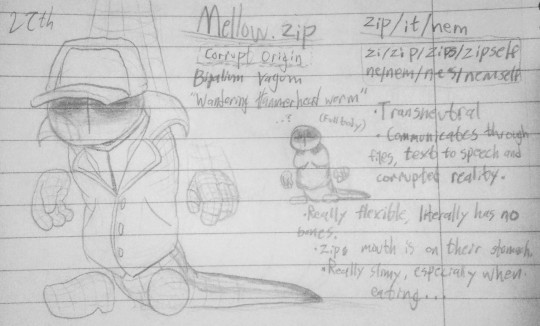 27th
Mellow.zip
Corrupt Origin
Bipalium Vagum
"Wandering Hammerhead worm"
zip/it/nem
zi/zip/zips/zipself
ne/nem/nes/nemself
...?
(Full body)
• Transneutral
• Communicates through
files, text to speech and
corrupted reality.
• Really flexible, literally has no
bones.
• Zips mouth is on their stomach
• Really slimy, especially when
eating...